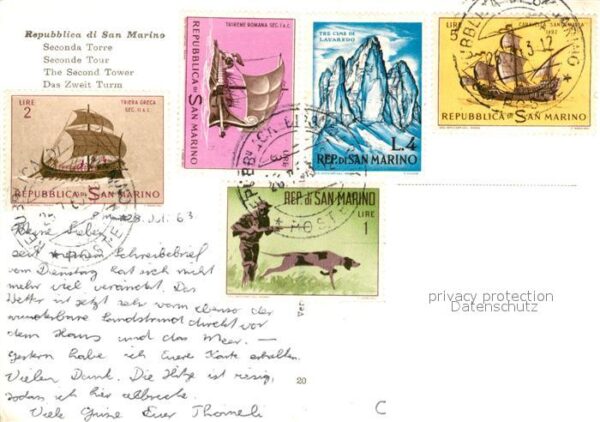 Repubblica di San Marino
Seconda Torre
Seconde Tour
The Second Tower
Das Zweit Turm
LIRE 2
TRIERA GRECA
SEC. II a.C.
REPUBBLICA DI SAN MARINO
TRIREME ROMANA SEC. I a.C.
REPUBBLICA DI SAN MARINO
LIRE
TRE CIME DI
LAVAREDO
L.4
REP. DI SAN MARINO
5
1492
REPUBBLICA DI SAN MARINO
REP. di SAN MARINO
LIRE
1
23. Juli 63
Meine Lieben,
seit Schreibebrief
vom Dienstag hat sich nicht
mehr viel verändert. Das
Wetter ist jetzt sehr warm ebenso der
wunderbare Landstrand direkt vor
dem Haus und das Meer. —
Gestern habe ich Euere Karte erhalten.
Vielen Dank. Die Hitze ist riesig,
sodass ich hier
Viele Grüsse Euer
privacy protection
Datenschutz
Ver
20
C